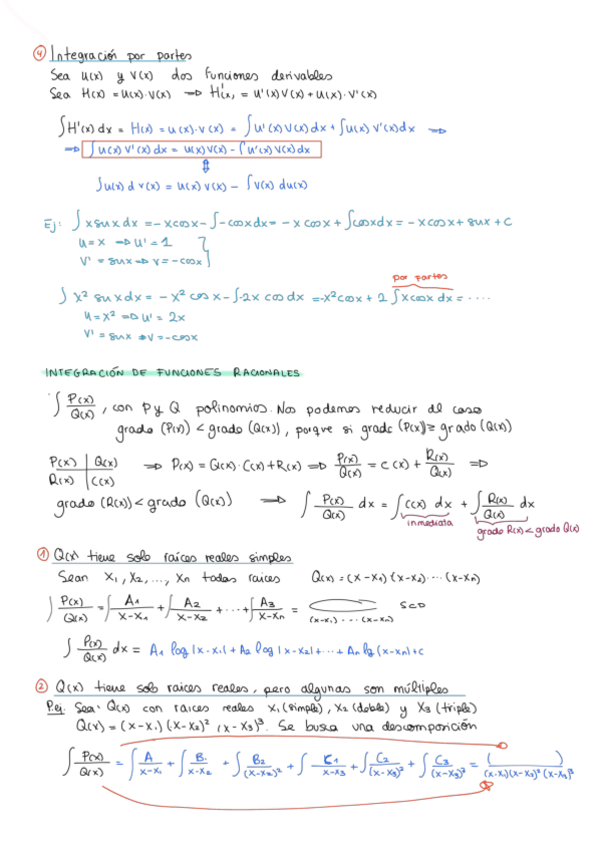 ④ Integración por partes
Sea u(x) y v(x) dos funciones derivables
Sea H(x) = u(x)·v(x) ⇒ H'(x) = u'(x)v(x) + u(x)·v'(x)
∫H'(x)dx = H(x) = u(x)·v(x) = ∫u'(x)v(x)dx + ∫u(x) v'(x)dx ⇒
⇒ ∫u(x) v'(x)dx = u(x)v(x) - ∫u'(x)v(x)dx
⇕
∫u(x) d v(x) = u(x)v(x) - ∫v(x) du(x)
Ej: ∫x senx dx = -xcosx - ∫-cosxdx = -x cosx + ∫cosxdx = -xcosx + senx + C
u = x ⇒ u' = 1
v' = senx ⇒ v = -cosx
por partes
∫x² senxdx = -x² cosx - ∫-2x cosxdx = -x²cosx + 2∫xcosx dx = ....
u = x² ⇒ u' = 2x
v' = senx ⇒ v = -cosx
INTEGRACIÓN DE FUNCIONES RACIONALES
∫ P(x)/Q(x), con P y Q polinomios. Nos podemos reducir al caso
grado (P(x)) < grado (Q(x)), porque si grado (P(x)) ≥ grado (Q(x))
P(x) | Q(x) ⇒ P(x) = Q(x)·C(x) + R(x) ⇒ P(x)/Q(x) = C(x) + R(x)/Q(x) ⇒
R(x) | C(x)
grado (R(x)) < grado (Q(x)) ⇒ ∫ P(x)/Q(x) dx = ∫C(x) dx + ∫ R(x)/Q(x) dx
inmediata
grado R(x) < grado Q(x)
① Q(x) tiene solo raíces reales simples
Sean x₁, x₂, ..., xn todas raíces Q(x) = (x-x₁)(x-x₂)···(x-xn)
∫ P(x)/Q(x) = ∫ A₁/x-x₁ + ∫ A₂/x-x₂ + ··· + ∫ A₃/x-xn = /(x-x₁)···(x-xn) SCD
∫ P(x)/Q(x) dx = A₁ log|x-x₁| + A₂ log|x-x₂| + ··· + An lg(x-xn) + c
② Q(x) tiene solo raíces reales, pero algunas son múltiples
P.ej. Sea Q(x) con raíces reales x₁ (simple), x₂ (doble) y x₃ (triple)
Q(x) = (x-x₁)(x-x₂)²(x-x₃)³. Se busca una descomposición
∫ P(x)/Q(x) = ∫ A/x-x₁ + ∫ B₁/x-x₂ + ∫ B₂/(x-x₂)² + ∫ C₁/x-x₃ + ∫ C₂/(x-x₃)² + ∫ C₃/(x-x₃)³ = ( )/(x-x₁)(x-x₂)²(x-x₃)³